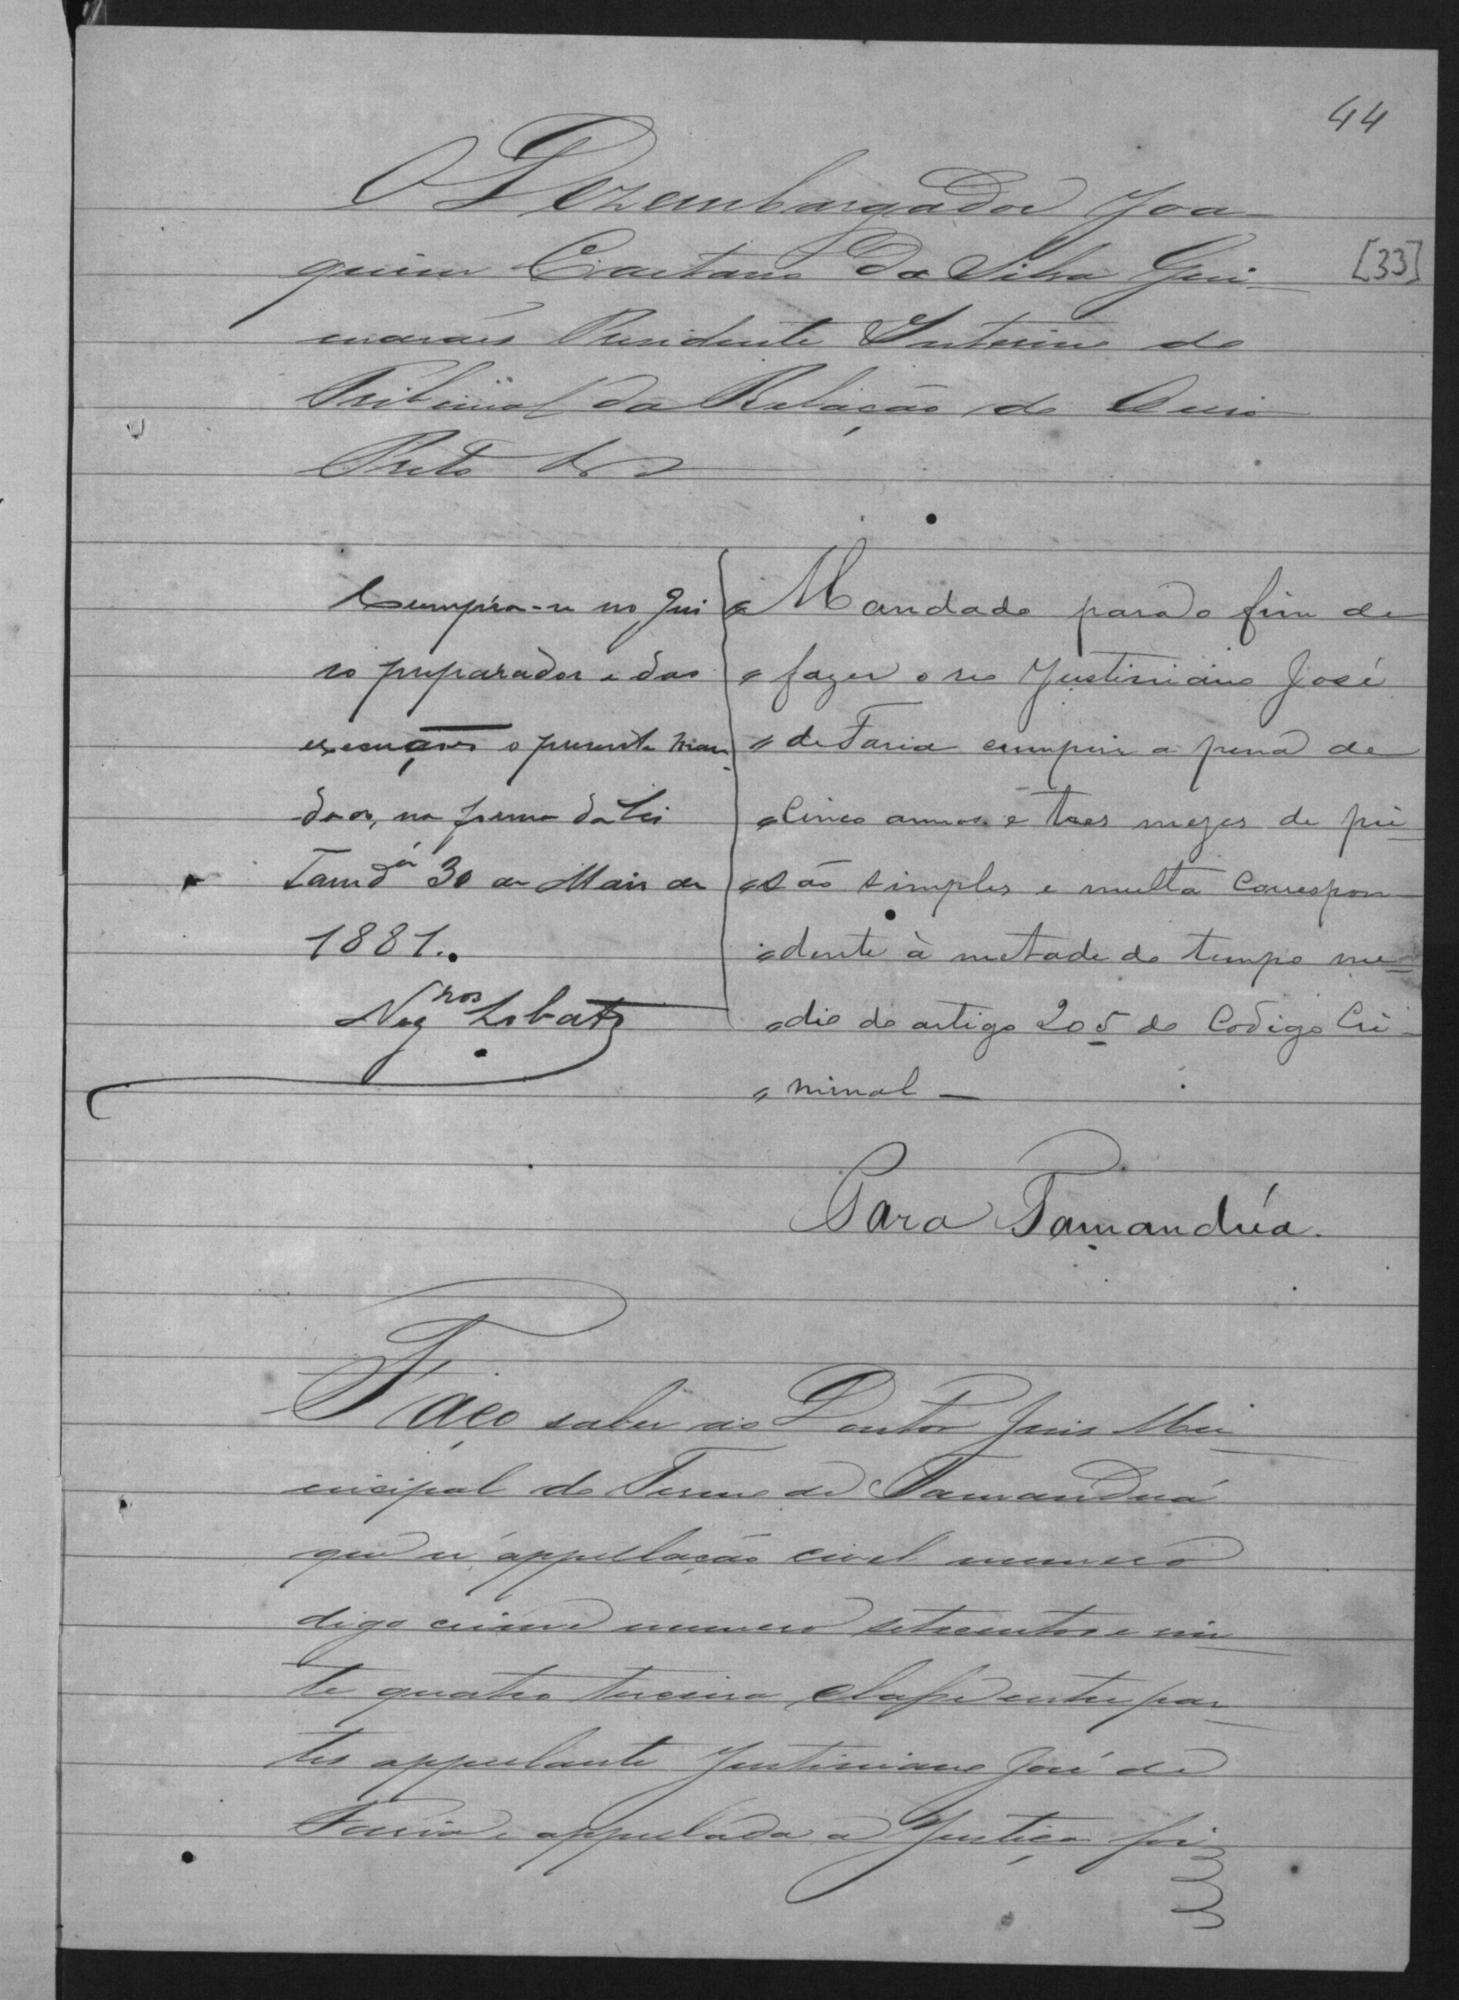 44
O Dezembargador Joa-
quim Caetano da Silva Gui-
[33]
marães Presidente Interino do
Tribunal da Relação de Ouro
Preto &
Cumpra-se no Jui
so preparador e das
execuções o presente man
dado, na forma da Lei
Tamdᵃ 30 de Maio de
1881..
Negʳᵒˢ Lobato
" Mandado para o fim de
" fazer o reo Justiniano José
" de Faria cumprir a pena de
" Cinco annos e tres mezes de pri-
" são simples e multa correspon-
" dente à metade do tempo me-
" dio do artigo 205 do Codigo Cri-
" minal —
Para Tamandúa.
Faço saber ao Doutor Juis Mu-
nicipal do Termo de Tamanduá
que n' appellação civel numero
digo crime numero setecentos e vin-
te quatro terceira classe entre par-
tes appellante Justiniano José de
Faria e appellada a Justiça foi